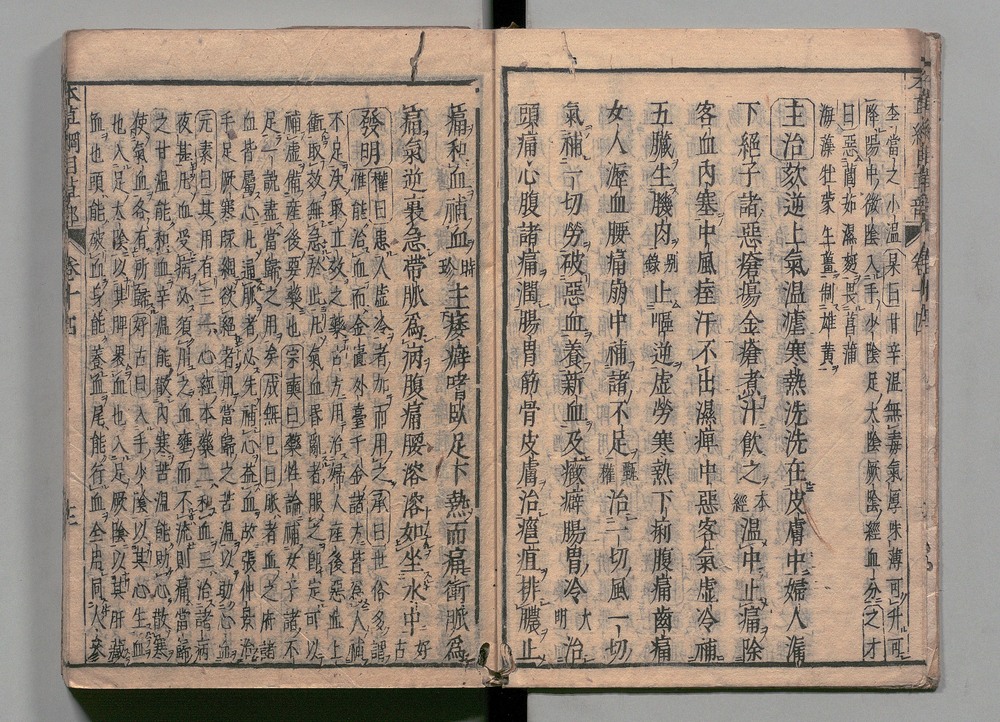 李當之小溫杲曰甘辛溫無毒氣厚味薄可升可
降陽中微陰入手少陰足太陰厥陰經血分之才
曰惡䕡茹濕麪畏菖蒲
海藻牡蒙生薑制雄黃
主治欬逆上氣溫瘧寒熱洗洗在皮膚中婦人漏
下絕子諸惡瘡瘍金瘡煮汁飲之本經溫中止痛除
客血內塞中風痓汗不出濕痺中惡客氣虛冷補
五臟生肌肉別錄止嘔逆虛勞寒熱下痢腹痛齒痛
女人瀝血腰痛崩中補諸不足甄權治一切風一切
氣補一切勞破惡血養新血及癥癖腸胃冷大明治
頭痛心腹諸痛潤腸胃筋骨皮膚治癰疽排膿止
痛和血補血時珍主痿癖嗜臥足下熱而痛衝脈爲
病氣逆裏急帶脈爲病腹痛腰溶溶如坐水中好古
發明權曰患人虛冷者加而用之承曰世俗多謂
惟能治血而金匱外臺千金諸方皆爲大補
不足決取立效之藥古方用治婦人産後惡血上
衝取效無急於此凡氣血昏亂者服之卽定可以
補虛備産後要藥也宗奭曰藥性論補女子諸不
足一說盡當歸之用矣成無已曰脈者血之府諸
血皆屬心凡通脈者必先補心益血故張仲景治
手足厥寒脈細欲絕者用當歸之苦溫以助心血
元素曰其用有三一心經本藥二和血三治諸病
夜甚凡血受病必須用之血壅而不流則痛當歸
之甘溫能和血辛溫能散內寒苦溫能助心散寒
使氣血各有所歸好古曰入手少陰以其心生血
也入足太陰以其脾裹血也入足厥陰以其肝藏
血也頭能破血身能養血尾能行血全用同人參
本草綱目草部 卷十四